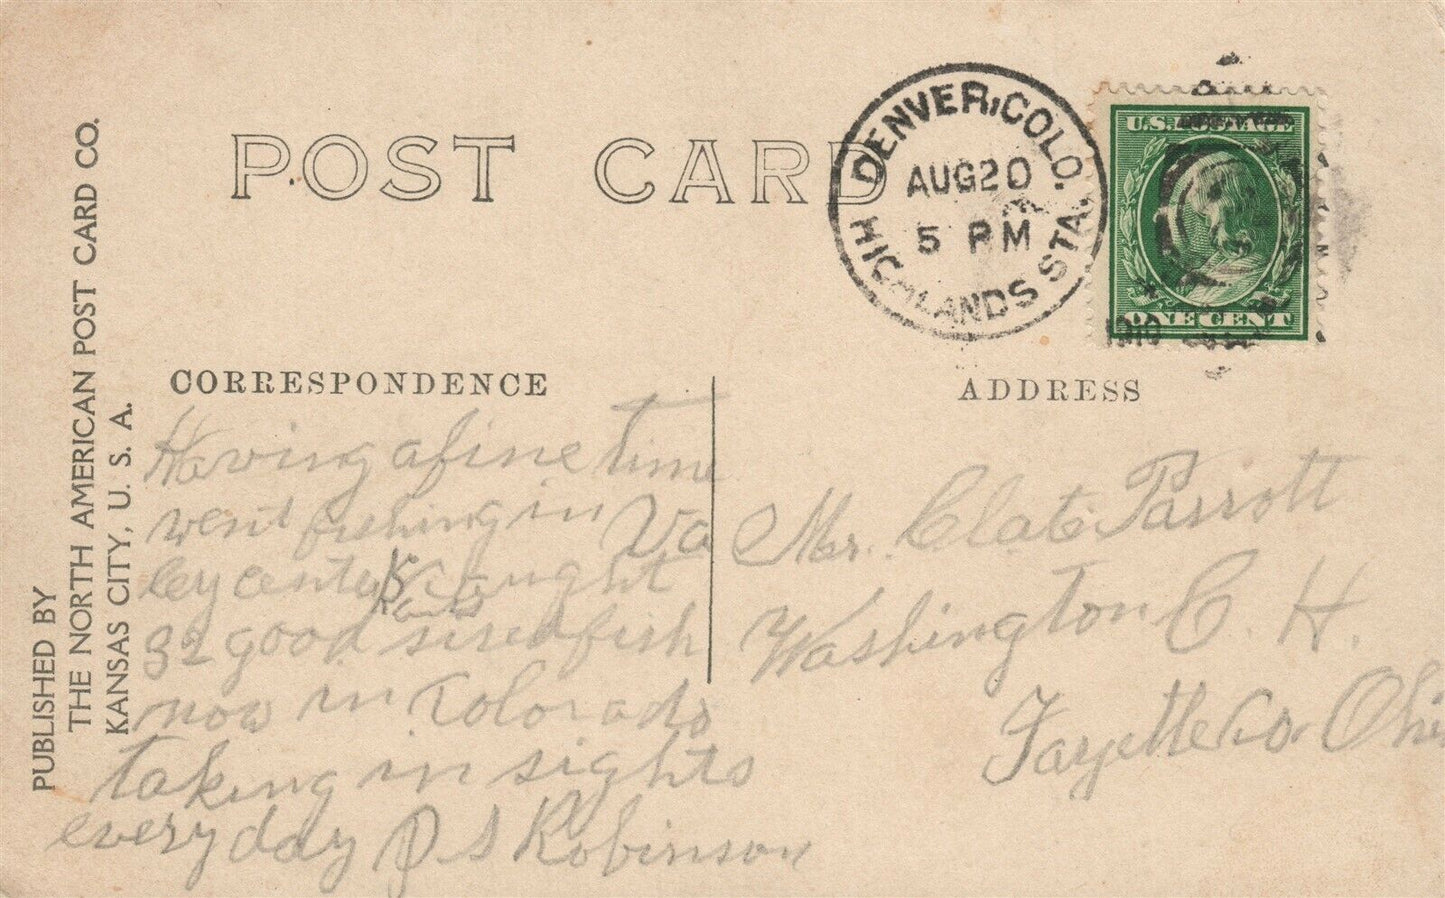 POST CARD
DENVER, COLO.
AUG 20
5 PM
HIGHLANDS STA.
1910
U.S. POSTAGE
ONE CENT
PUBLISHED BY
THE NORTH AMERICAN POST CARD CO.
KANSAS CITY, U. S. A.
CORRESPONDENCE
Having a fine time
went fishing in Va
ley center Caught
Kans
32 good sised fish
now in Colorado
taking in sights
every day P S Robinson
ADDRESS
Mr. Clate Parrott
Washington C. H.
Fayette Co Ohio